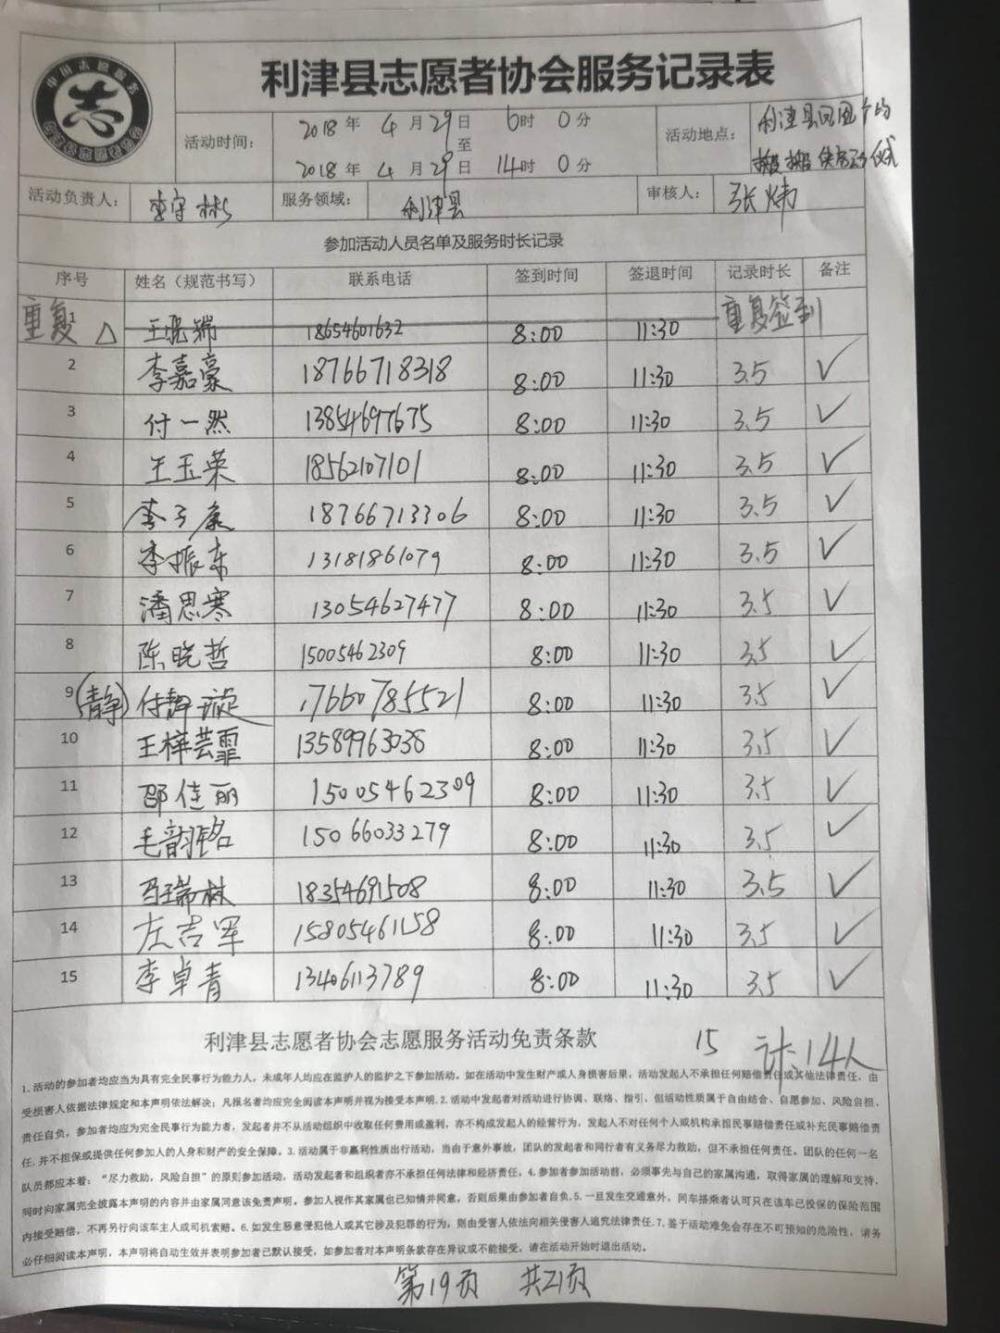 中国志愿服务
志
利津县志愿者协会服务记录表
活动时间： 2018年 4月29日 6时 0分
至
2018年 4月29日 14时 0分
活动地点： 利津县
活动负责人： 李守彬 服务领域： 利津县 审核人： 张炜
参加活动人员名单及服务时长记录
序号 姓名（规范书写） 联系电话 签到时间 签退时间 记录时长 备注
重复 △ 1 18654601632 8:00 11:30 重复签到
2 李嘉豪 18766718318 8:00 11:30 3.5 ✓
3 付一然 13854697675 8:00 11:30 3.5 ✓
4 王玉荣 18562107101 8:00 11:30 3.5 ✓
5 李子康 18766713306 8:00 11:30 3.5 ✓
6 李振东 13181861079 8:00 11:30 3.5 ✓
7 潘思寒 13054627477 8:00 11:30 3.5 ✓
8 陈晓哲 15005462309 8:00 11:30 3.5 ✓
9 (静) 付静漩 17660785521 8:00 11:30 3.5 ✓
10 王梓芸霏 13589963038 8:00 11:30 3.5 ✓
11 邵佳丽 15005462309 8:00 11:30 3.5 ✓
12 毛韵铭 15066033279 8:00 11:30 3.5 ✓
13 马瑞林 18354691508 8:00 11:30 3.5 ✓
14 左吉军 15805461158 8:00 11:30 3.5 ✓
15 李卓青 13406113789 8:00 11:30 3.5 ✓
利津县志愿者协会志愿服务活动免责条款 15 计:14人
1.活动的参加者均应当为具有完全民事行为能力人，未成年人均应在监护人的监护之下参加活动。如在活动中发生财产或人身损害后果，活动发起人不承担任何赔偿责任或其他法律责任，由
受损害人依据法律规定和本声明依法解决；凡报名者均应完全阅读本声明并视为接受本声明.2.活动中发起者对活动进行协调、联络、指引，但活动性质属于自由结合、自愿参加、风险自担、
责任自负，参加者均应为完全民事行为能力者，发起者并不从活动组织中收取任何费用或盈利，亦不构成发起人的经营行为，发起人不对任何个人或机构承担民事赔偿责任或补充民事赔偿责
任，并不担保或提供任何参加人的人身和财产的安全保障。3.活动属于非赢利性质出行活动，当由于意外事故，团队的发起者和同行者有义务尽力救助，但不承担任何责任。团队的任何一名
队员都应本着：“尽力救助，风险自担”的原则参加活动，活动发起者和组织者亦不承担任何法律和经济责任。4.参加者参加活动前，必须事先与自己的家属沟通，取得家属的理解和支持，
同时向家属完全披露本声明的内容并由家属同意该免责声明，参加人视作其家属也已知情并同意，否则后果由参加者自负.5.一旦发生交通意外，同车搭乘者认可只在该车已投保的保险范围
内接受赔偿，不再另行向该车主人或司机索赔。6.如发生恶意侵犯他人或其它涉及犯罪的行为，则由受害人依法向相关侵害人追究法律责任.7.鉴于活动难免会存在不可预知的危险性，请务
必仔细阅读本声明，本声明将自动生效并表明参加者已默认接受，如参加者对本声明条款存在异议或不能接受，请在活动开始时退出活动。
第19页 共21页